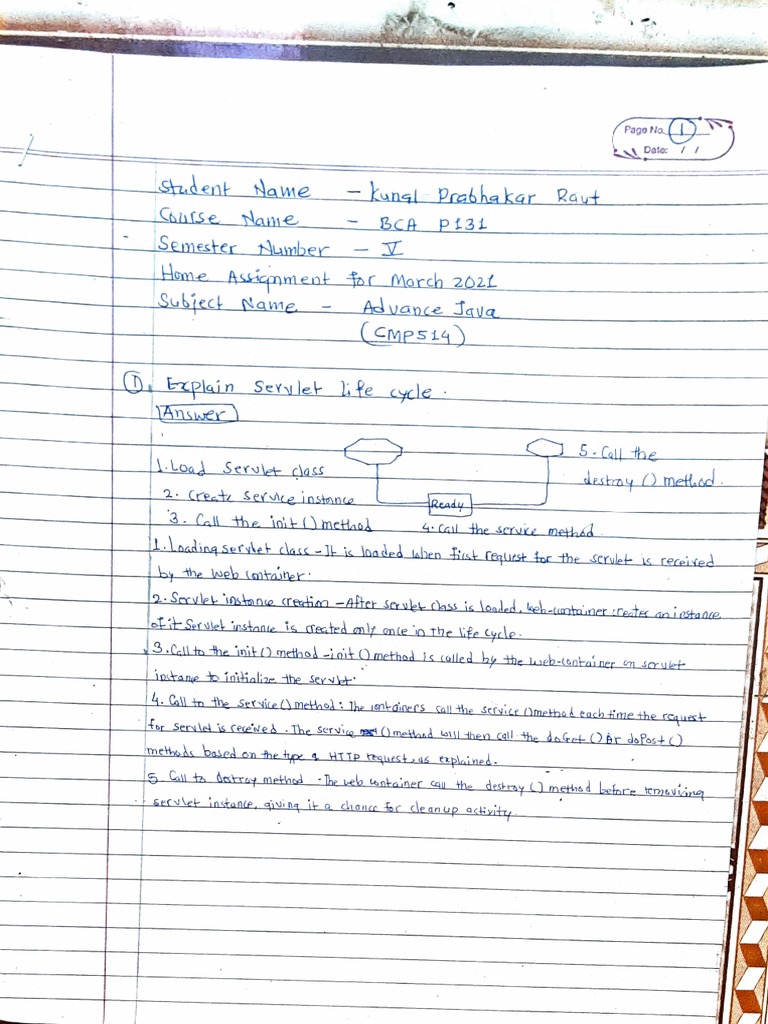 Page No. 1
Date: / /
Student Name - Kunal Prabhakar Raut
Course Name - BCA P131
Semester Number - V
Home Assignment for March 2021
Subject Name - Advance Java
(CMP514)
①. Explain Servlet life cycle.
Answer
5. Call the
1. Load Servlet class
destroy () method.
2. Create service instance
Ready
3. Call the init () method
4. Call the service method
1. Loading servlet class - It is loaded when first request for the servlet is received
by the web container.
2. Servlet instance creation - After servlet class is loaded, web-container creates an instance
of it Servlet instance is created only once in the life cycle.
3. Call to the init () method - init () method is called by the web-container on servlet
instance to initialize the servlet.
4. Call to the service () method : The containers call the service () method each time the request
for servlet is received. The service () method will then call the doGet () or doPost ()
methods based on the type of HTTP request, as explained.
5. Call to destroy method - The web container call the destroy () method before removing
servlet instance, giving it a chance for cleanup activity.